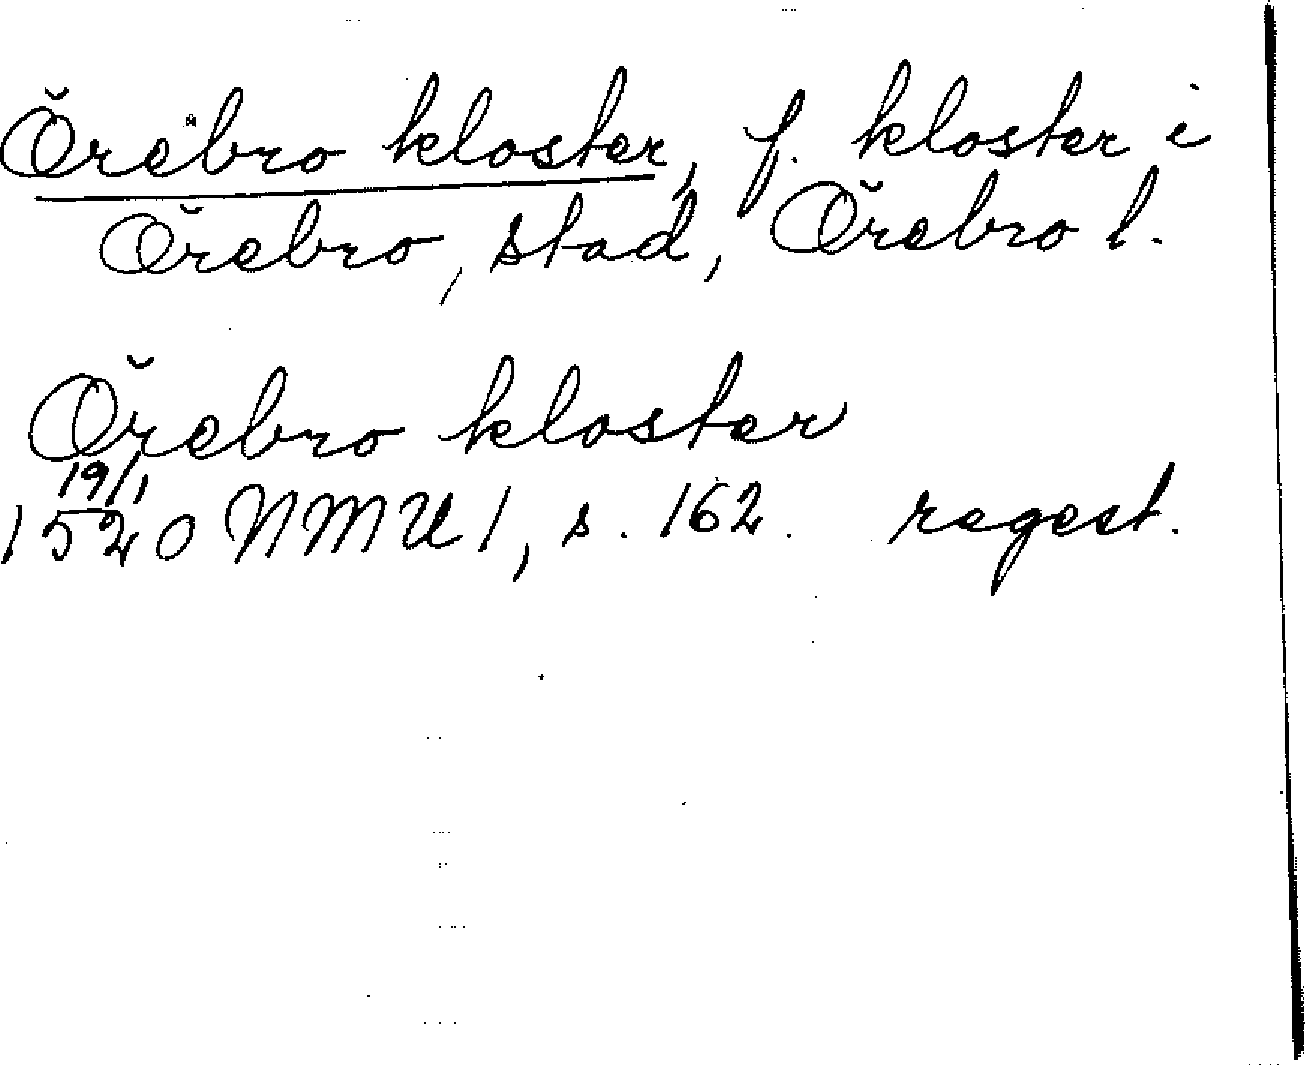 Örebro kloster, f. kloster i
Örebro, stad, Örebro l.
Örebro kloster
19/1
1520 NMU 1, s. 162. regest.